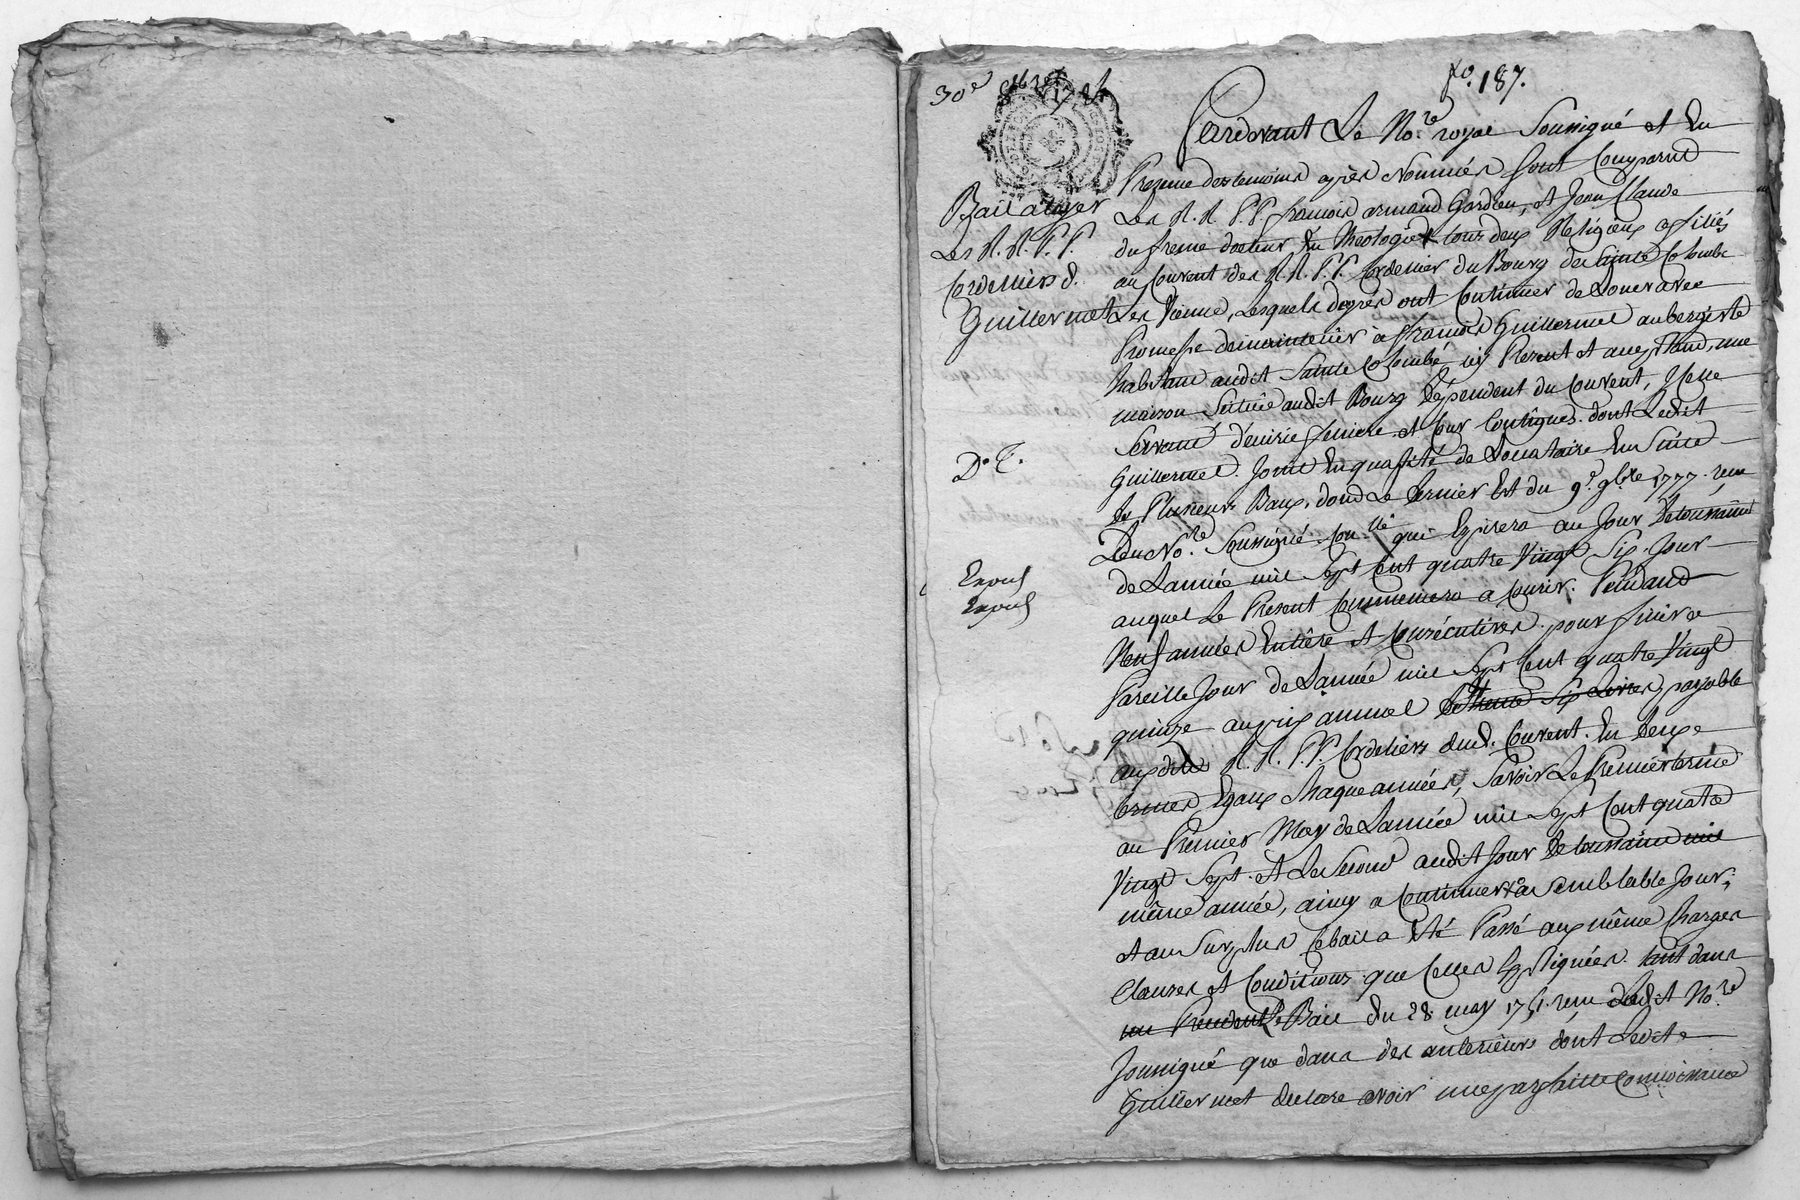 30e 8bre 1784
fo. 187.
Bail a loyer
Les R. R. P. P.
Cordeliers d.
Guillermet
D. C.
Expié
Expié
Pardevant Le No.re royal Soussigné et En
Presence des temoins après Nommés sont Comparus
Les R. R. P. P. francois armand Gardien, et Jean Claude
dufresne docteur En Theologie tous deux Religieux affiliés
au Couvent des R. R. P. P. Cordelier du Bourg de Sainte Colombe
Les Vienne, Lesquels degrés ont Continuer de Louer avec
Promesse de maintenir à francois Guillermet aubergiste
habitant audit Sainte Colombe icy Present et acceptand, une
maison Scituée audit Bourg dépendent du Couvent, Icelle
Servant d'ecurie feniere et Cour Contigues dont Ledit
Guillermet Jouit En qualité de Locataire En Suite
de Plusieurs Baux, dond Le dernier Est du 9e. 9bre 1777 recu
Du No.re Soussigné qui Expirera au Jour de toussaint
de L'année mil Sept Cent quatre Vingt Six Jour
auquel Le Present Commencera a Courir Pendand
Neuf années Entiére et Consécutives pour finir a
Pareille Jour de L'année mil Sept Cent quatre Vingt
quinze au prix annuel de trente Six Livres payable
auxdits R. R. P. P. Cordeliers dud. Couvent En deux
termes Egaux Chaque années, Savoir Le Premier terme
au Premier May de L'année mil Sept Cent quatre
Vingt Sept et Le Second audit Jour de toussaint
même année, ainsy a Continuer a semblable Jour,
et au Surplus Ce bail a Eté Passé aux même Charges
Clauses et Conditions que Celles Expliquées tant dans
Le Bail du 28 may recu dudit No.re
Soussigné que dans des anterieurs dont Ledit
Guillermet declare avoir une parfaitte Connoissance